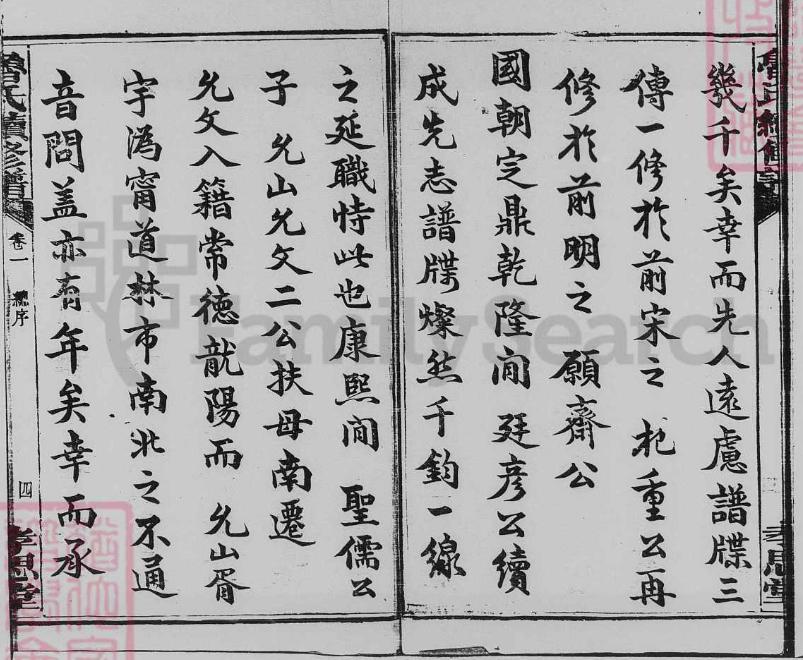 幾千矣幸而先人遠慮譜牒三
傳一修於前宋之 杞重公再
修於前明之 願齋公
國朝定鼎乾隆间 廷彥公續
成先志譜牒燦然千鈞一線
之延職恃此也康熙间 聖儒公
子 允山允文二公扶母南遷
允文入籍常德龍陽而 允山胥
宇溈甯道林市南北之不通
音問盖亦有年矣幸而承
魯氏續修譜 卷一 總序 四 孝思堂
FamilySearch